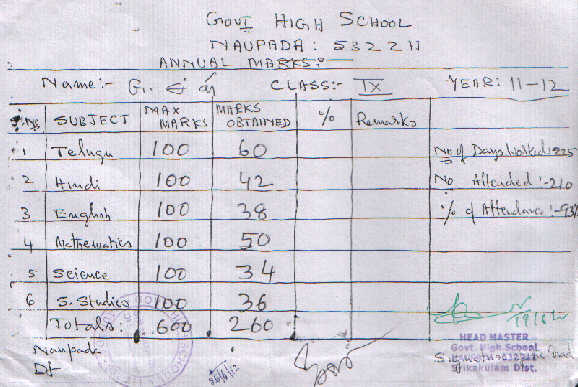 GOVT HIGH SCHOOL
NAUPADA: 532211
ANNUAL MARKS:-
Name:- G. CLASS:- IX YEAR: 11-12
S.No SUBJECT MAX MARKS MARKS OBTAINED % Remarks
1 Telugu 100 60 No of Days Worked:-225
2 Hindi 100 42 No Attended:-210
3 English 100 38 % of Attendance:-93%
4 Mathematics 100 50
5 Science 100 34
6 S. Studies 100 36
Totals: 600 260
Naupada
Dt
HEAD MASTER
Govt. High School
Srikakulam Dist.